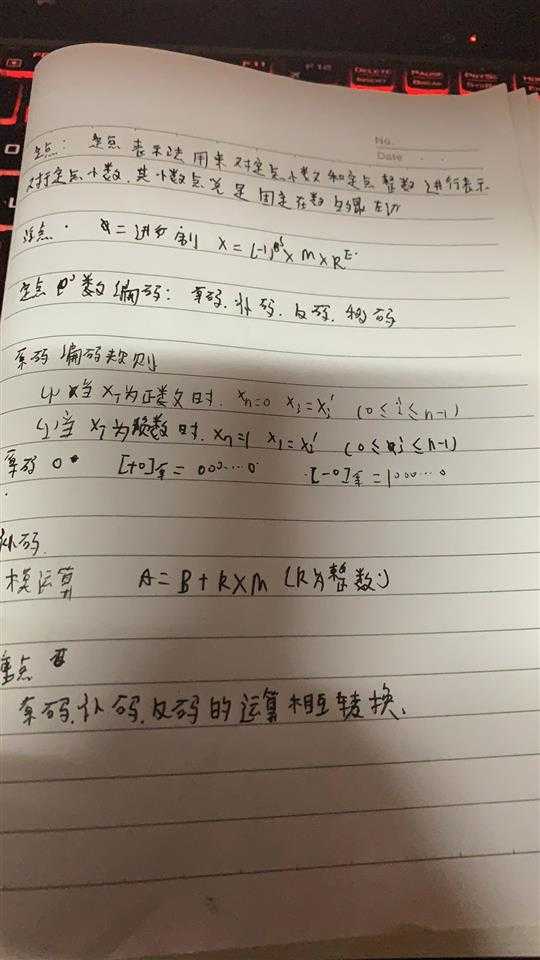 F11
F12
DELETE
PAUSE
BREAK
No.
Date
定点: 定点表示法用来对定点小数和定点整数进行表示
对于定点小数,其小数点总是固定在数的最左边
浮点. 二进制 X=(-1)^S×M×R^E.
定点数编码: 原码,补码,反码,移码
原码编码规则
(1) 当 X_T为正数时. X_n=0 X_i=X_i' (0≤i≤n-1)
(2) 当 X_T为负数时. X_n=1 X_i=X_i' (0≤i≤n-1)
原码0 [+0]原=000……0 [-0]原=1000……0
补码.
模运算 A=B+K×M (K为整数)
重点
原码,补码,反码的运算相互转换.